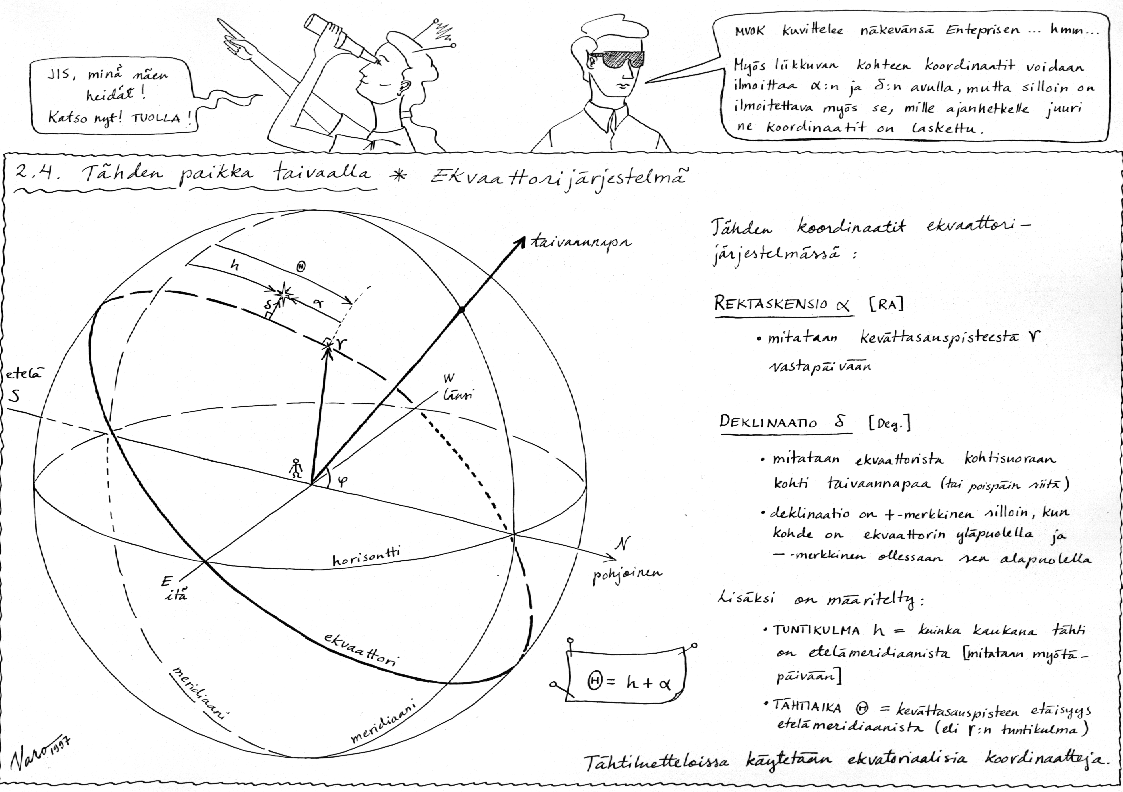 JIS, minä näen
heidät!
Katso nyt! TUOLLA!
MVOK kuvittelee näkevänsä Enteprisen ... hmm...
Myös liikkuvan kohteen koordinaatit voidaan
ilmoittaa α:n ja δ:n avulla, mutta silloin on
ilmoitettava myös se, mille ajanhetkelle juuri
ne koordinaatit on laskettu.
2.4. Tähden paikka taivaalla * Ekvaattorijärjestelmä
taivaannapa
Θ
h
α
δ
γ
etelä
S
W
länsi
φ
N
pohjoinen
horisontti
E
itä
ekvaattori
meridiaani
meridiaani
Θ = h + α
Varo 1997
Tähden koordinaatit ekvaattori-
järjestelmässä:
REKTASKENSIO α [RA]
• mitataan kevättasauspisteestä γ
vastapäivään
DEKLINAATIO δ [Deg.]
• mitataan ekvaattorista kohtisuoraan
kohti taivaannapaa (tai poispäin siitä)
• deklinaatio on +-merkkinen silloin, kun
kohde on ekvaattorin yläpuolella ja
–-merkkinen ollessaan sen alapuolella
Lisäksi on määritelty:
• TUNTIKULMA h = kuinka kaukana tähti
on etelämeridiaanista [mitataan myötä-
päivään]
• TÄHTIAIKA Θ = kevättasauspisteen etäisyys
etelämeridiaanista (eli γ:n tuntikulma)
Tähtiluetteloissa käytetään ekvatoriaalisia koordinaatteja.